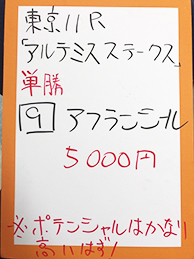 東京11R
「アルテミスステークス」
単勝
9 アフランシール
5000円
※ポテンシャルはかなり
高いはず!